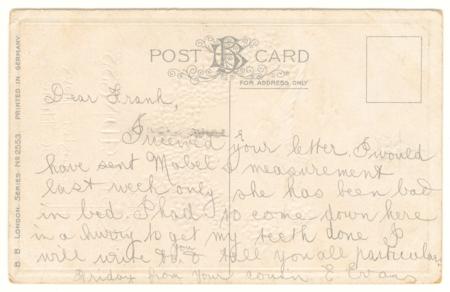 POST CARD
BB
FOR ADDRESS ONLY
B. B. LONDON. SERIES NO 2553. PRINTED IN GERMANY.
Dear Frank,
I received your letter. I would
have sent Mabel s measurement
last week only she has been bad
in bed. I had to come down here
in a hurry to get my teeth done I
will write to you & tell you all particular
Friday from your cousin E. Evans